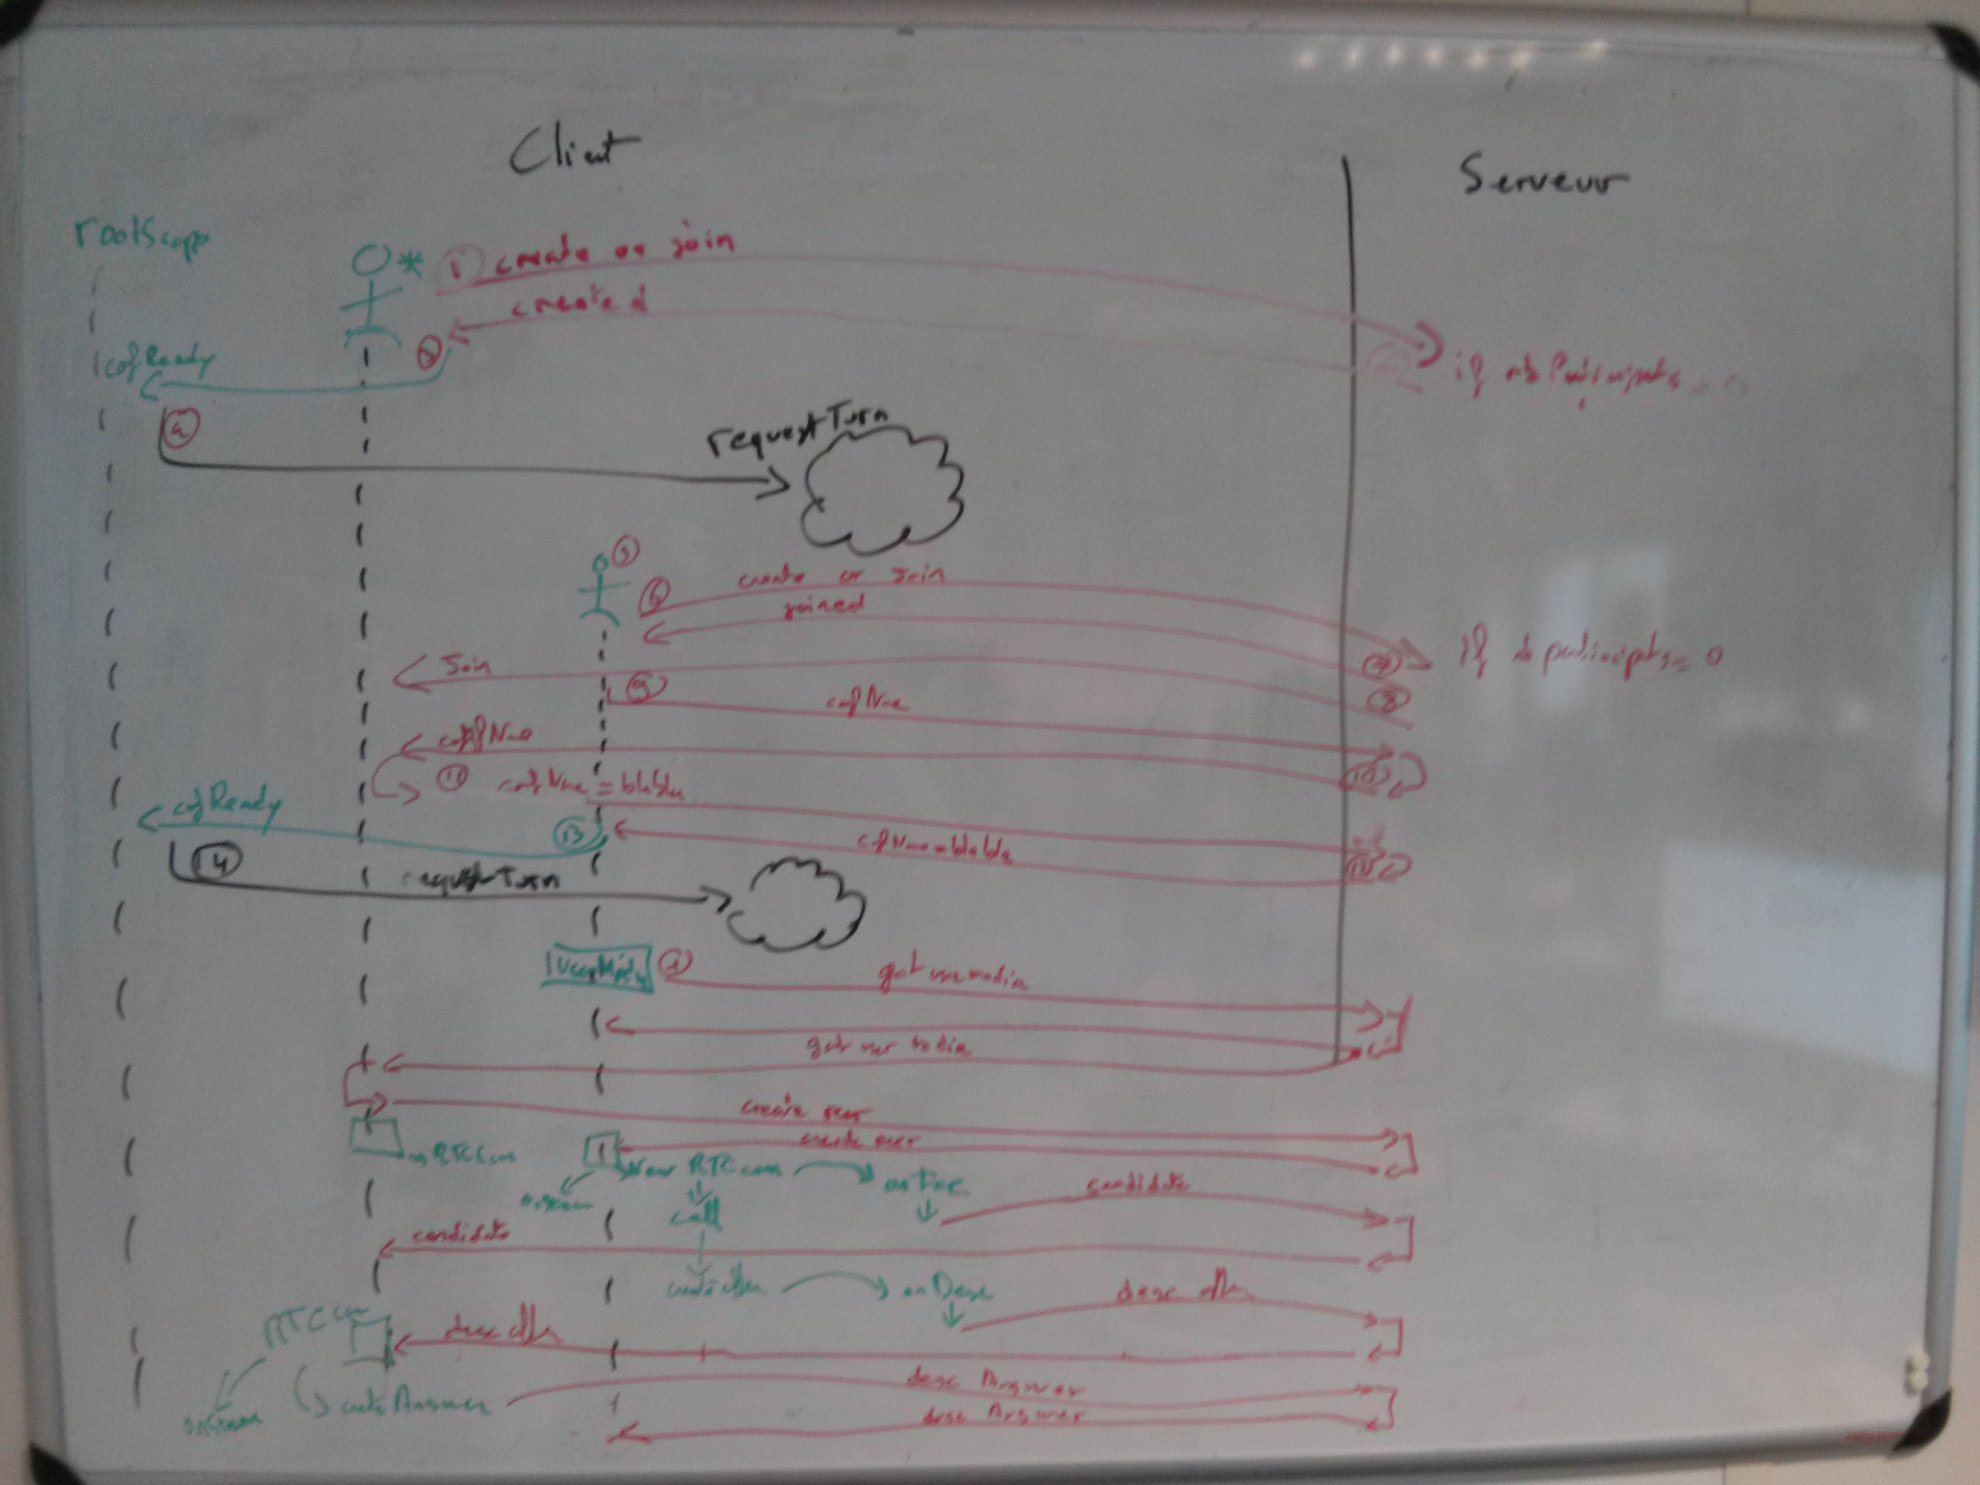 Client
Serveur
rootScope
* 1 create or join
created
3
cofReady
if nbParticipants
4
requestTurn
5
6 create or Join
joined
Join
7
if nbparticipants = 0
9
8
confName
confName
10
11 confName = blabla
cofReady
13
cofName = blabla
12
14 requestTurn
UserMedia
get usermedia
got user media
create peer
create peer
new RTC com
onIce
candidate
onStream
call
candidate
create offer
onDesc
desc offer
RTC com
desc offer
onStream
create Answer
desc Answer
desc Answer